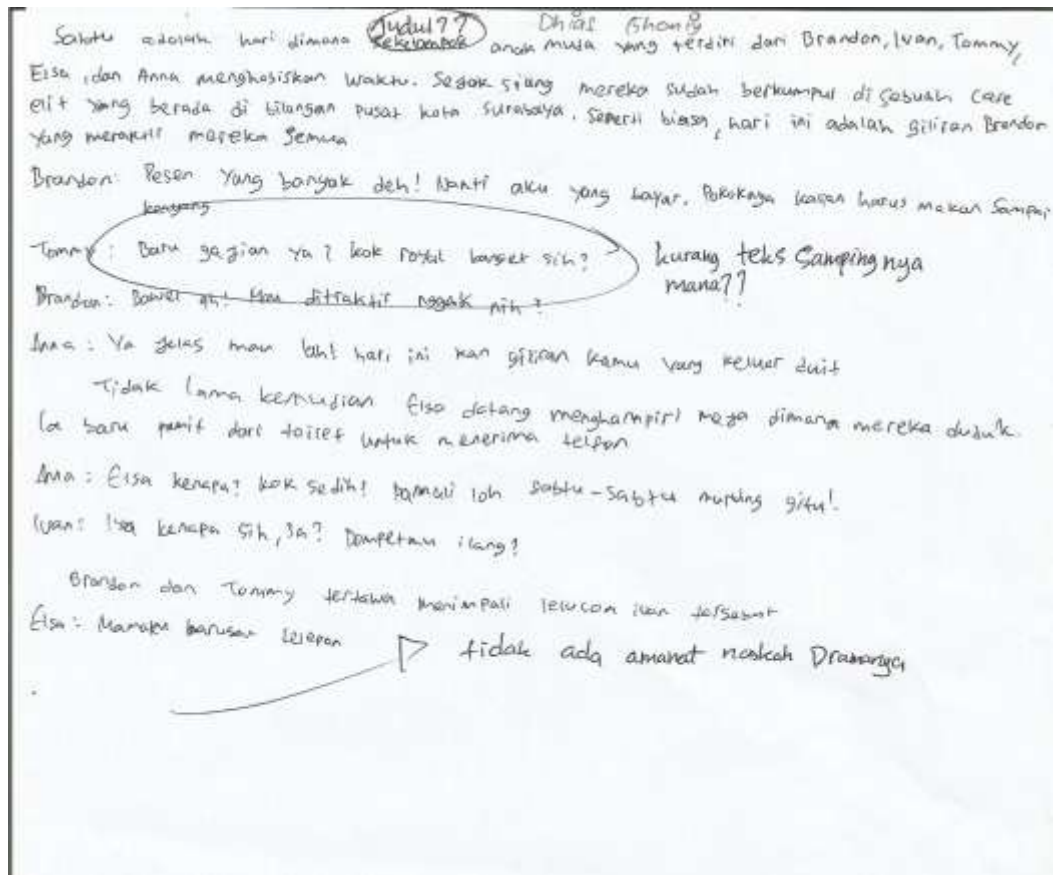 Judul??
Dhias Ghaniy
Sabtu adalah hari dimana sekelompok anak muda yang terdiri dari Brandon, Ivan, Tommy,
Elsa, dan Anna menghabiskan waktu. Sejak siang mereka sudah berkumpul di sebuah cafe
elit yang berada di bilangan pusat kota Surabaya. Seperti biasa, hari ini adalah giliran Brandon
yang meraktir mereka semua
Brandon: Pesen yang banyak deh! Nanti aku yang bayar. Pokoknya kalian harus makan sampai
kenyang
Tommy: Baru gajian ya? kok royal banget sih?
kurang teks sampingnya
mana??
Brandon: Bawel ah! Mau ditraktir nggak nih?
Anna: Ya jelas mau lah! hari ini kan giliran kamu yang keluar duit
Tidak lama kemudian Elsa datang menghampiri meja dimana mereka duduk.
Ia baru pamit dari toilet untuk menerima telfon
Anna: Elsa kenapa? kok sedih? pamali loh sabtu-sabtu murung gitu!
Ivan: Iya kenapa sih, Sa? Dompetmu ilang?
Brandon dan Tommy tertawa menimpali lelucon ivan tersebut
Elsa: Mamaku barusan telepon
tidak ada amanat naskah Dramanya